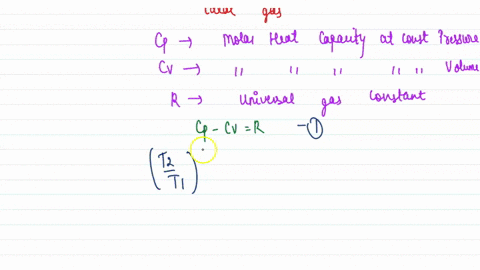 gas
Cp → Molar Heat Capacity at const Pressure
Cv → " " " " " Volume
R → Universal gas constant
Cp - Cv = R - ①
(T2/T1)